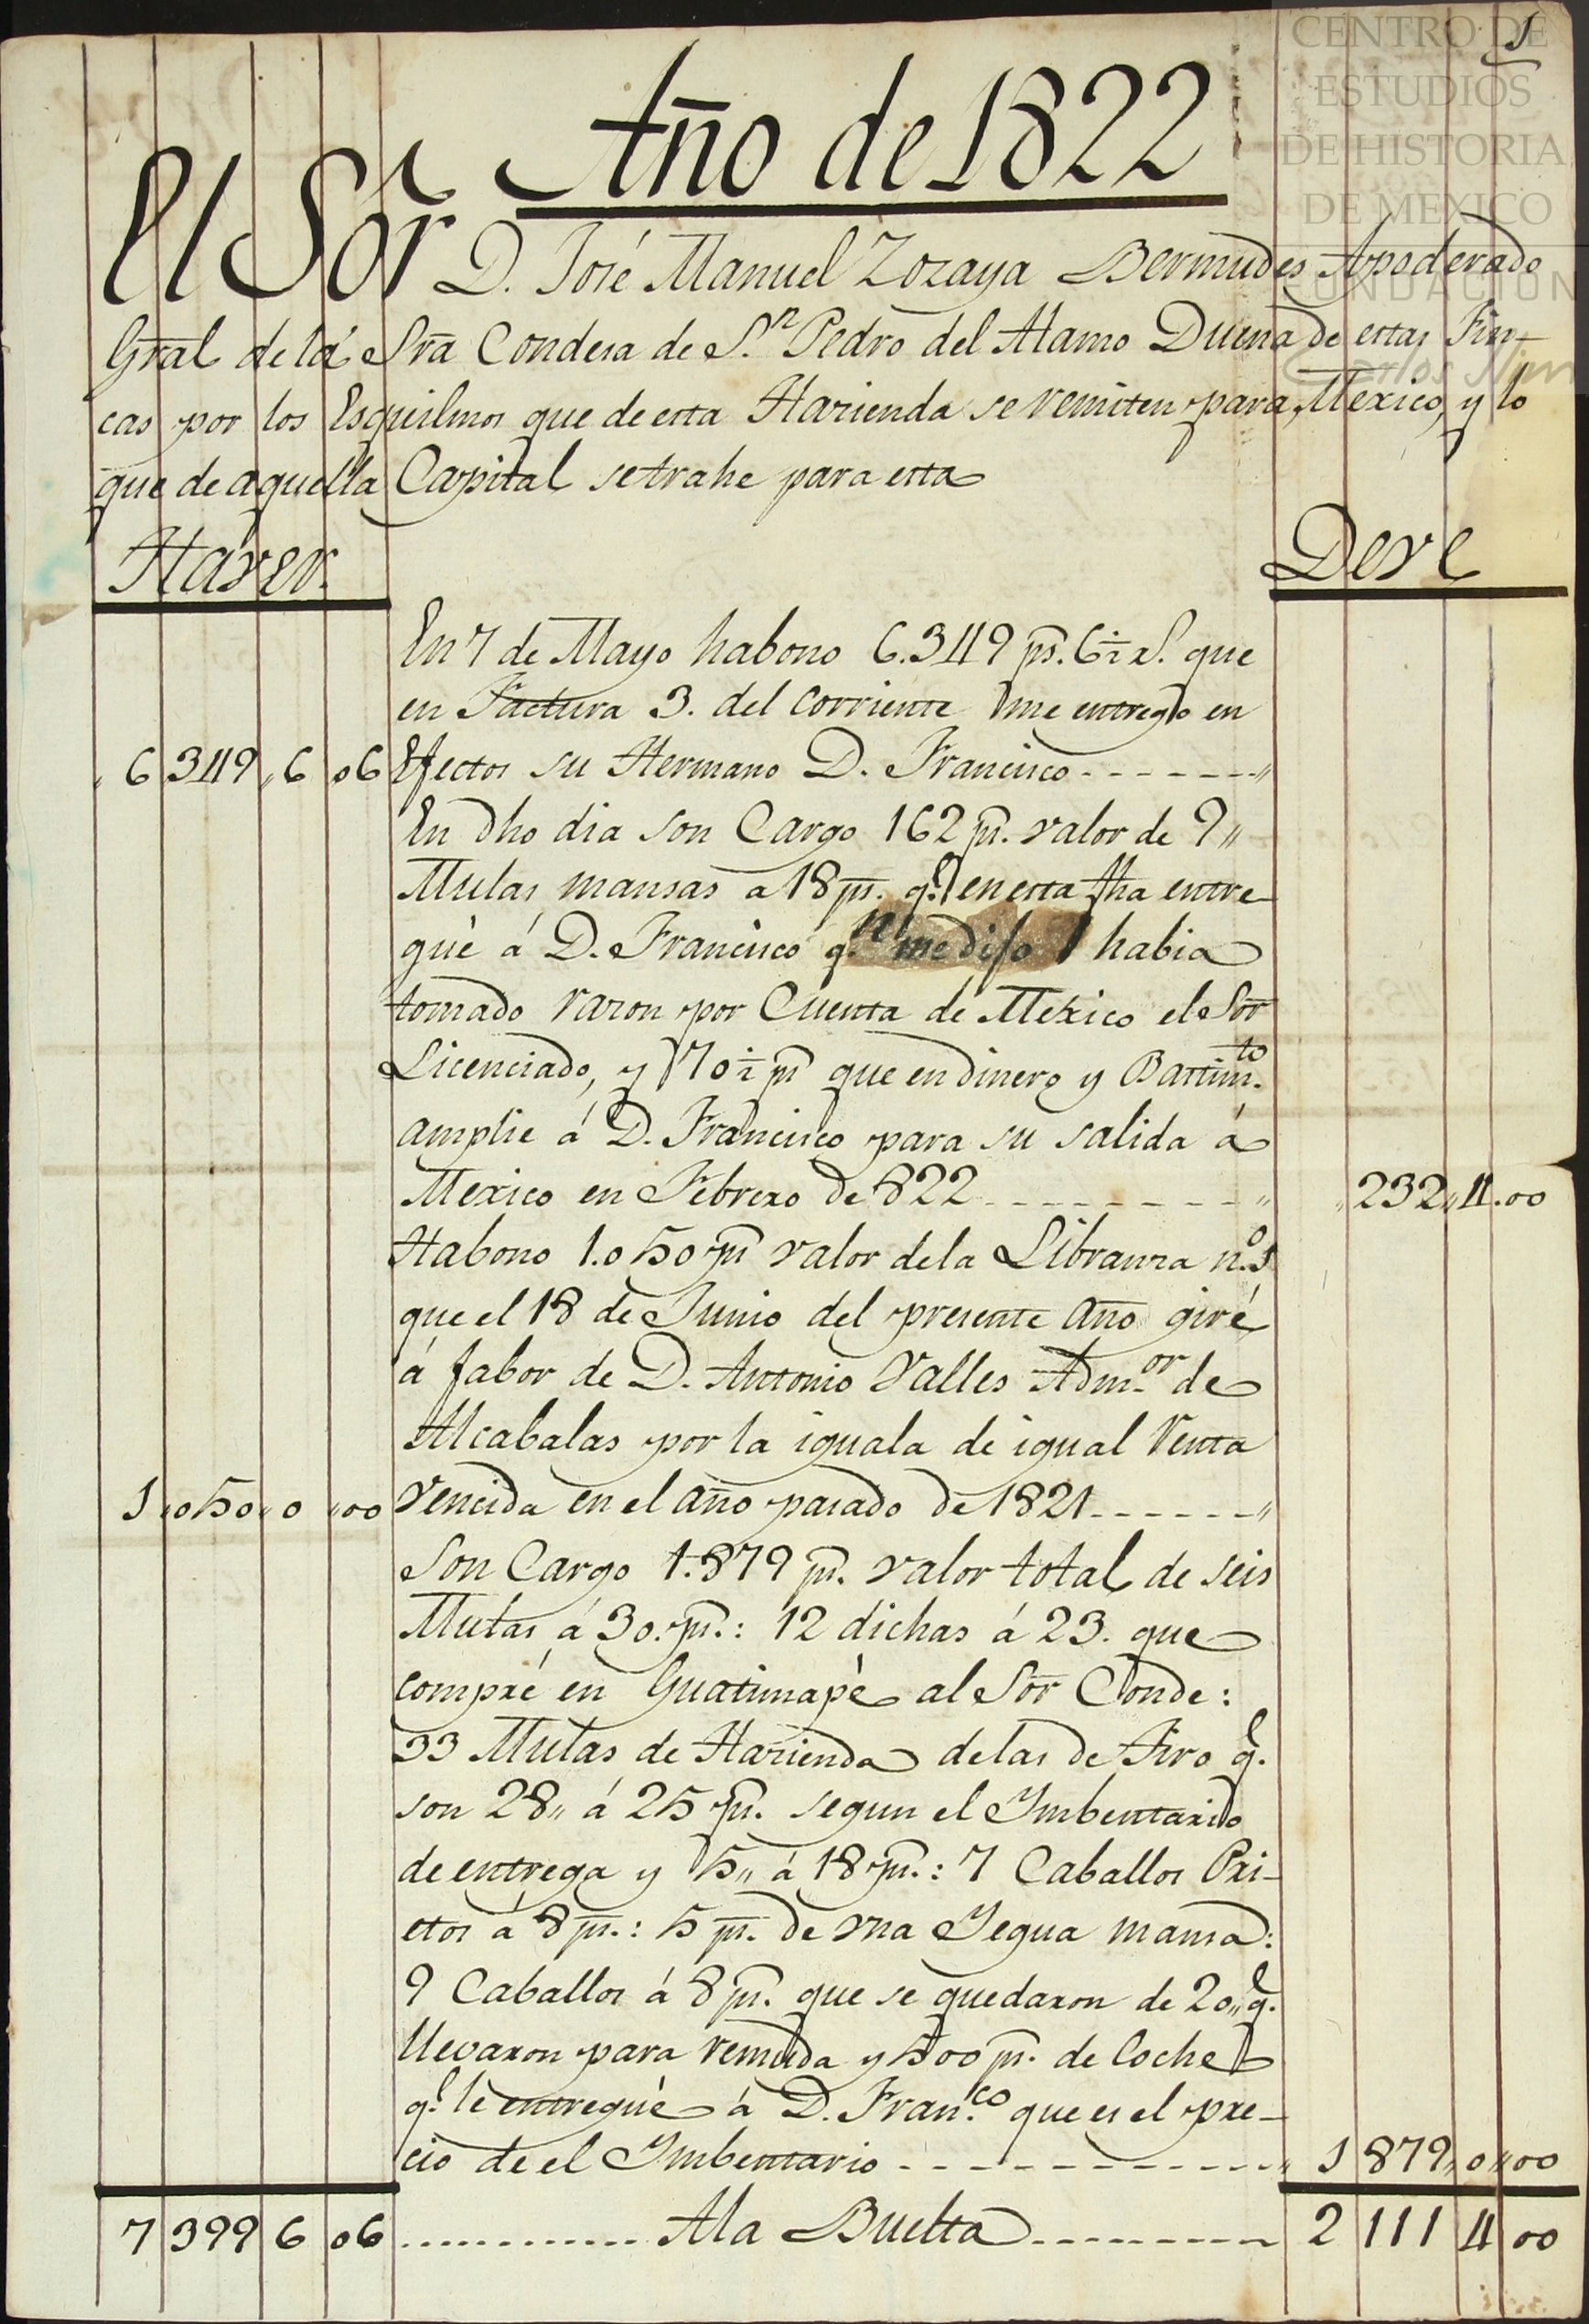 CENTRO DE
ESTUDIOS
DE HISTORIA
DE MEXICO
FUNDACION
Carlos Slim
1
Año de 1822
El Sōr D. José Manuel Zozaya Bermudes Apoderado
Gral de la Srā Condesa de S.n Pedro del Alamo Duena de estas Fin-
cas por los Esquilmos que de esta Hazienda se remiten para Mexico, y lo
que de aquella Capital se trahe para esta
Haver. Deve
En 7 de Mayo habono 6.349 ps. 6½ r.s que
en Factura 3. del corriente me entregó en
6 349,, 6 06 Efectos su Hermano D. Francisco - - - - - - - ,,
En dho dia son Cargo 162 ps. valor de 9,,
Mulas mansas a 18 ps. q.e en esta fha entre-
gué á D. Francisco q.n me dijo habia
tomado razon por Cuenta de Mexico el Sōr
Licenciado, y 70½ ps que en dinero y Bastim.to
amplie á D. Francisco para su salida á
Mexico en Febrero de 822 - - - - - - - - ,, ,, 232,, 4.00
Habono 1.050 ps valor de la Libranza n.o 1
que el 18 de Junio del presente año giré
á fabor de D. Antonio Valles Adm.or de
Alcabalas por la iguala de igual Venta
1 ,,050,, 0 ,,00 vencida en el año pasado de 1821 - - - - - - ,,
Son Cargo 1.879 ps. valor total de seis
Mulas á 30. ps.: 12 dichas á 23. que
compré en Guatimapé al Sōr Conde:
33 Mulas de Hazienda delas de Tiro q.e
son 28,, á 25 ps. segun el Ymbentario
de entrega y 5,, á 18 ps.: 7 Caballos Pri-
etos á 8 ps.: 5 ps. de vna Yegua mansa:
9 Caballos á 8 ps. que se quedaron de 20,, q.e
llevaron para remuda y 500 ps. de Coche
q.e le entregué á D. Fran.co que es el pre-
cio de el Ymbentario - - - - - - - - - - - - ,, 1 879,, 0,, 00
7 399 6 06 ............. Ala Buelta - - - - - - - - - 2 111 4 00